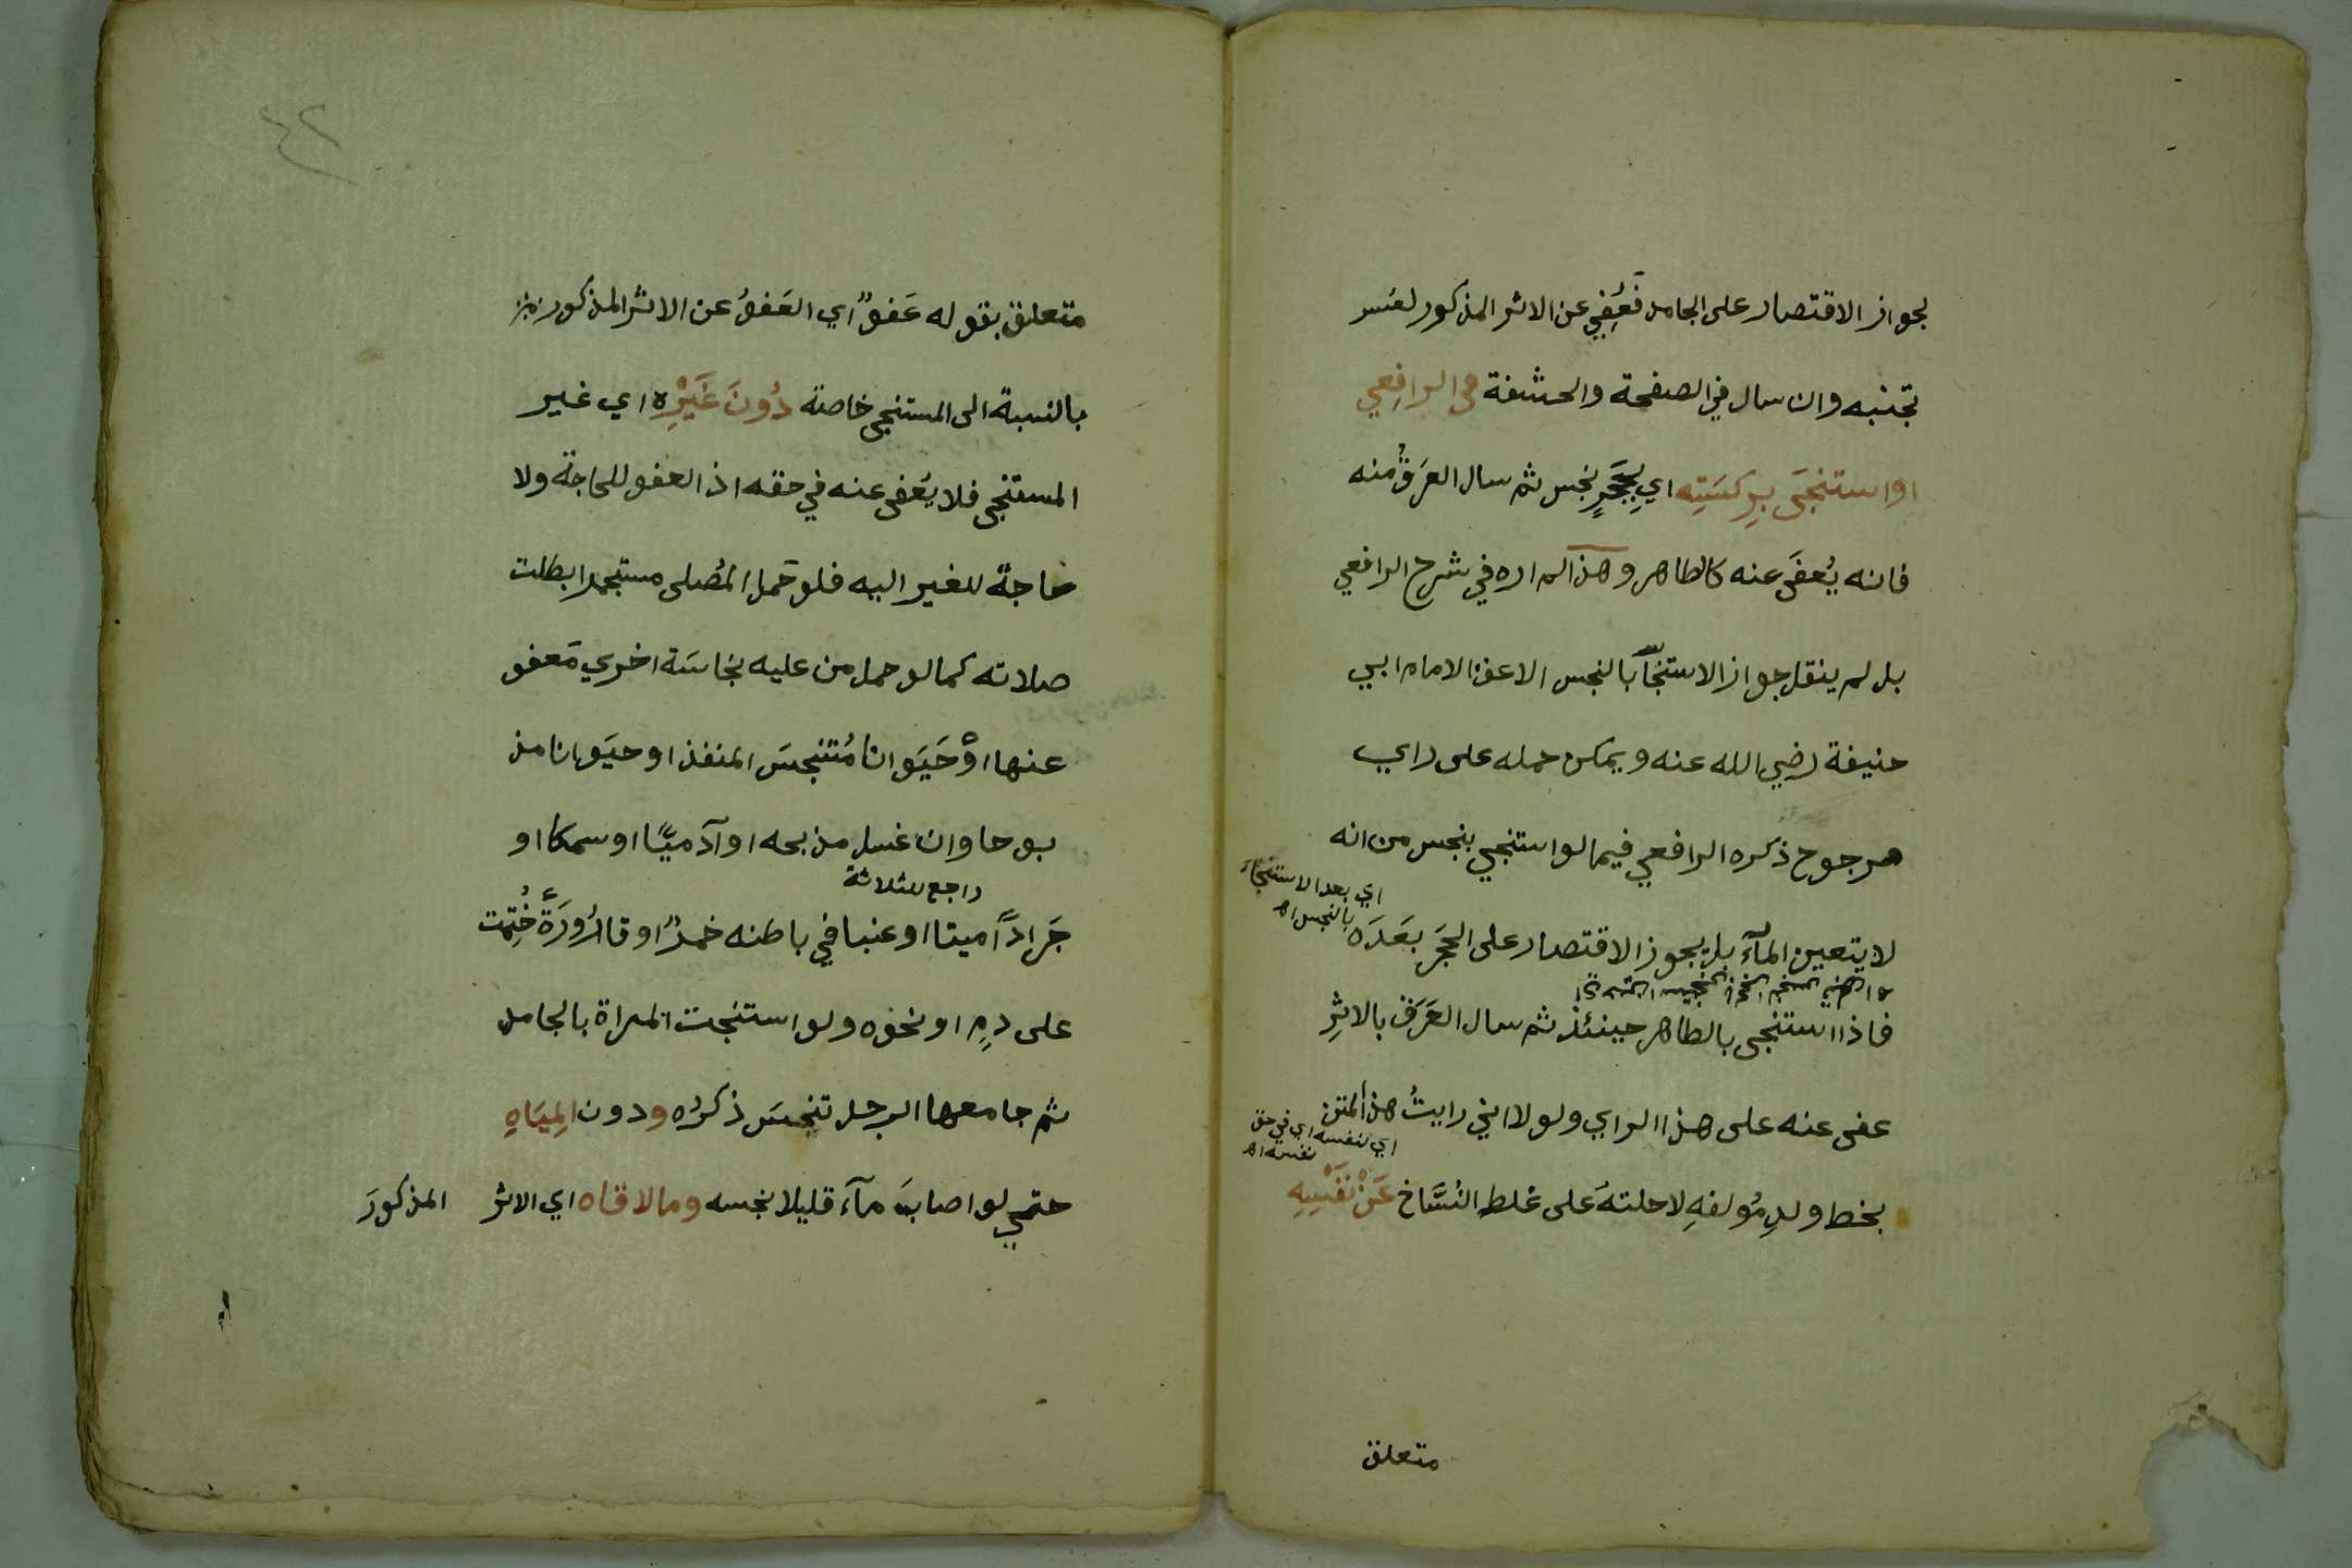 لجواز الاقتصار على الجامد فَعُفِي عن الاثر المذكور لعُسر
تجنبه وان سال في الصفحة والحشفة في الرافِعي
او استنجَى بِرِكسَتِه اي بِحَجَرٍ نجس ثم سال العَرَقُ منه
فانه يُعفَى عنه كالطاهر وهذا لم اره في شرح الرافعي
بل لم ينقل جواز الاستنجآء بالنجس الا عن الامام ابي
حنيفة رضي الله عنه ويمكن حمله على راي
مرجوح ذكره الرافعي فيما لو استنجي بنجس من انه
اي بعد الاستنجاء
بالنجس اه
لا يتعين المآء بل يجوز الاقتصار على الحجَر بعَدَه
فاذا استنجى بالطاهر حينئذ ثم سال العَرَق بالاثِرِ
عفى عنه على هذا الراي ولولا اني رايتُ هذا المتن
اي لنفسه اي في حق
نفسه اه
بخط ولدِ مُولفهِ لاحلتهَ على غلطِ النُسَّاخ عَنْ نَفْسِهِ
متعلق
٤٢
متعلق بقوله عَفوٌ اي العَفوُ عن الاثر المذكور
بالنسبة الى المستنجى خاصة دُونَ غَيْرِه اي غير
المستنجى فلا يُعَفى عنه في حقه اذ العفو للحاجة ولا
حاجة للغير اليه فلو حَمل المُصلى مستجمرا بطلت
صلاته كما لو حمل من عليه نجاسَة اخري مَعفو
عنها اوْ حَيَوانا مُتنجسَ المنفذ او حيَوانا مذ
بوحا وان غسل مذبحه او آدميًّا او سمكا او
راجع للثلاثة
جَراداً ميتا او عنبا في باطنه خمرٌ او قارُورَةً خُتِمت
على دمٍ او نحوه ولو استنجت المراة بالجامد
ثم جامعها الرجل تنجسَ ذكرُه ودون المِيَاهِ
حتي لو اصابَ مآءَ قليلا نجسه وما لاقاه اي الاثر المذكورَ